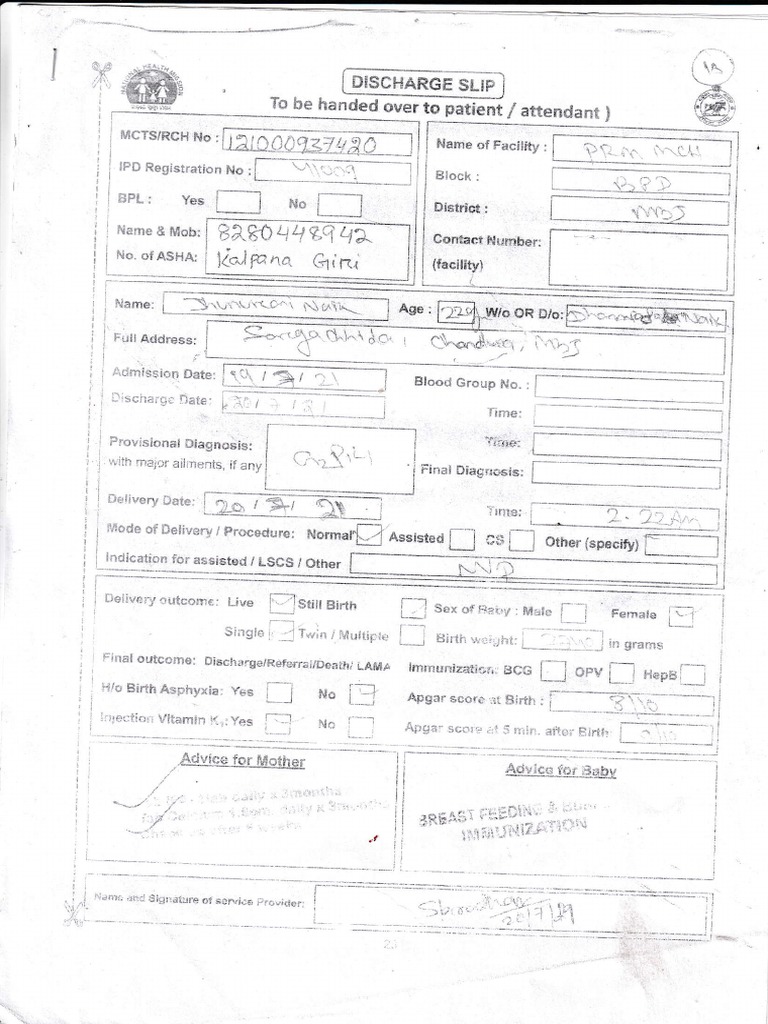 NATIONAL HEALTH MISSION
DISCHARGE SLIP
To be handed over to patient / attendant )
MCTS/RCH No : 121000937420
IPD Registration No :
BPL : Yes No
Name & Mob: 8280448942
No. of ASHA: Kalpana Giri
Name of Facility : PRM MCH
Block : BPD
District : MBJ
Contact Number:
(facility)
Name: Naik Age : 22y W/o OR D/o: Naik
Full Address: MBJ
Admission Date: 19/7/21 Blood Group No. :
Discharge Date: 20/7/21 Time:
Time:
Provisional Diagnosis: G2P1L1
with major ailments, if any
Final Diagnosis:
Delivery Date: 20/7/21 Time: 2.22AM
Mode of Delivery / Procedure: Normal Assisted CS Other (specify)
Indication for assisted / LSCS / Other NVD
Delivery outcome: Live Still Birth Sex of Baby : Male Female
Single Twin / Multiple Birth weight: in grams
Final outcome: Discharge/Referral/Death/ LAMA Immunization: BCG OPV HepB
H/o Birth Asphyxia: Yes No Apgar score at Birth : 8/10
Injection Vitamin K1: Yes No Apgar score at 5 min. after Birth: /10
Advice for Mother
daily x 3months
Calcium daily x 3months
after 6 weeks
Advice for Baby
BREAST FEEDING &
IMMUNIZATION
Name and Signature of service Provider: 20/7/21